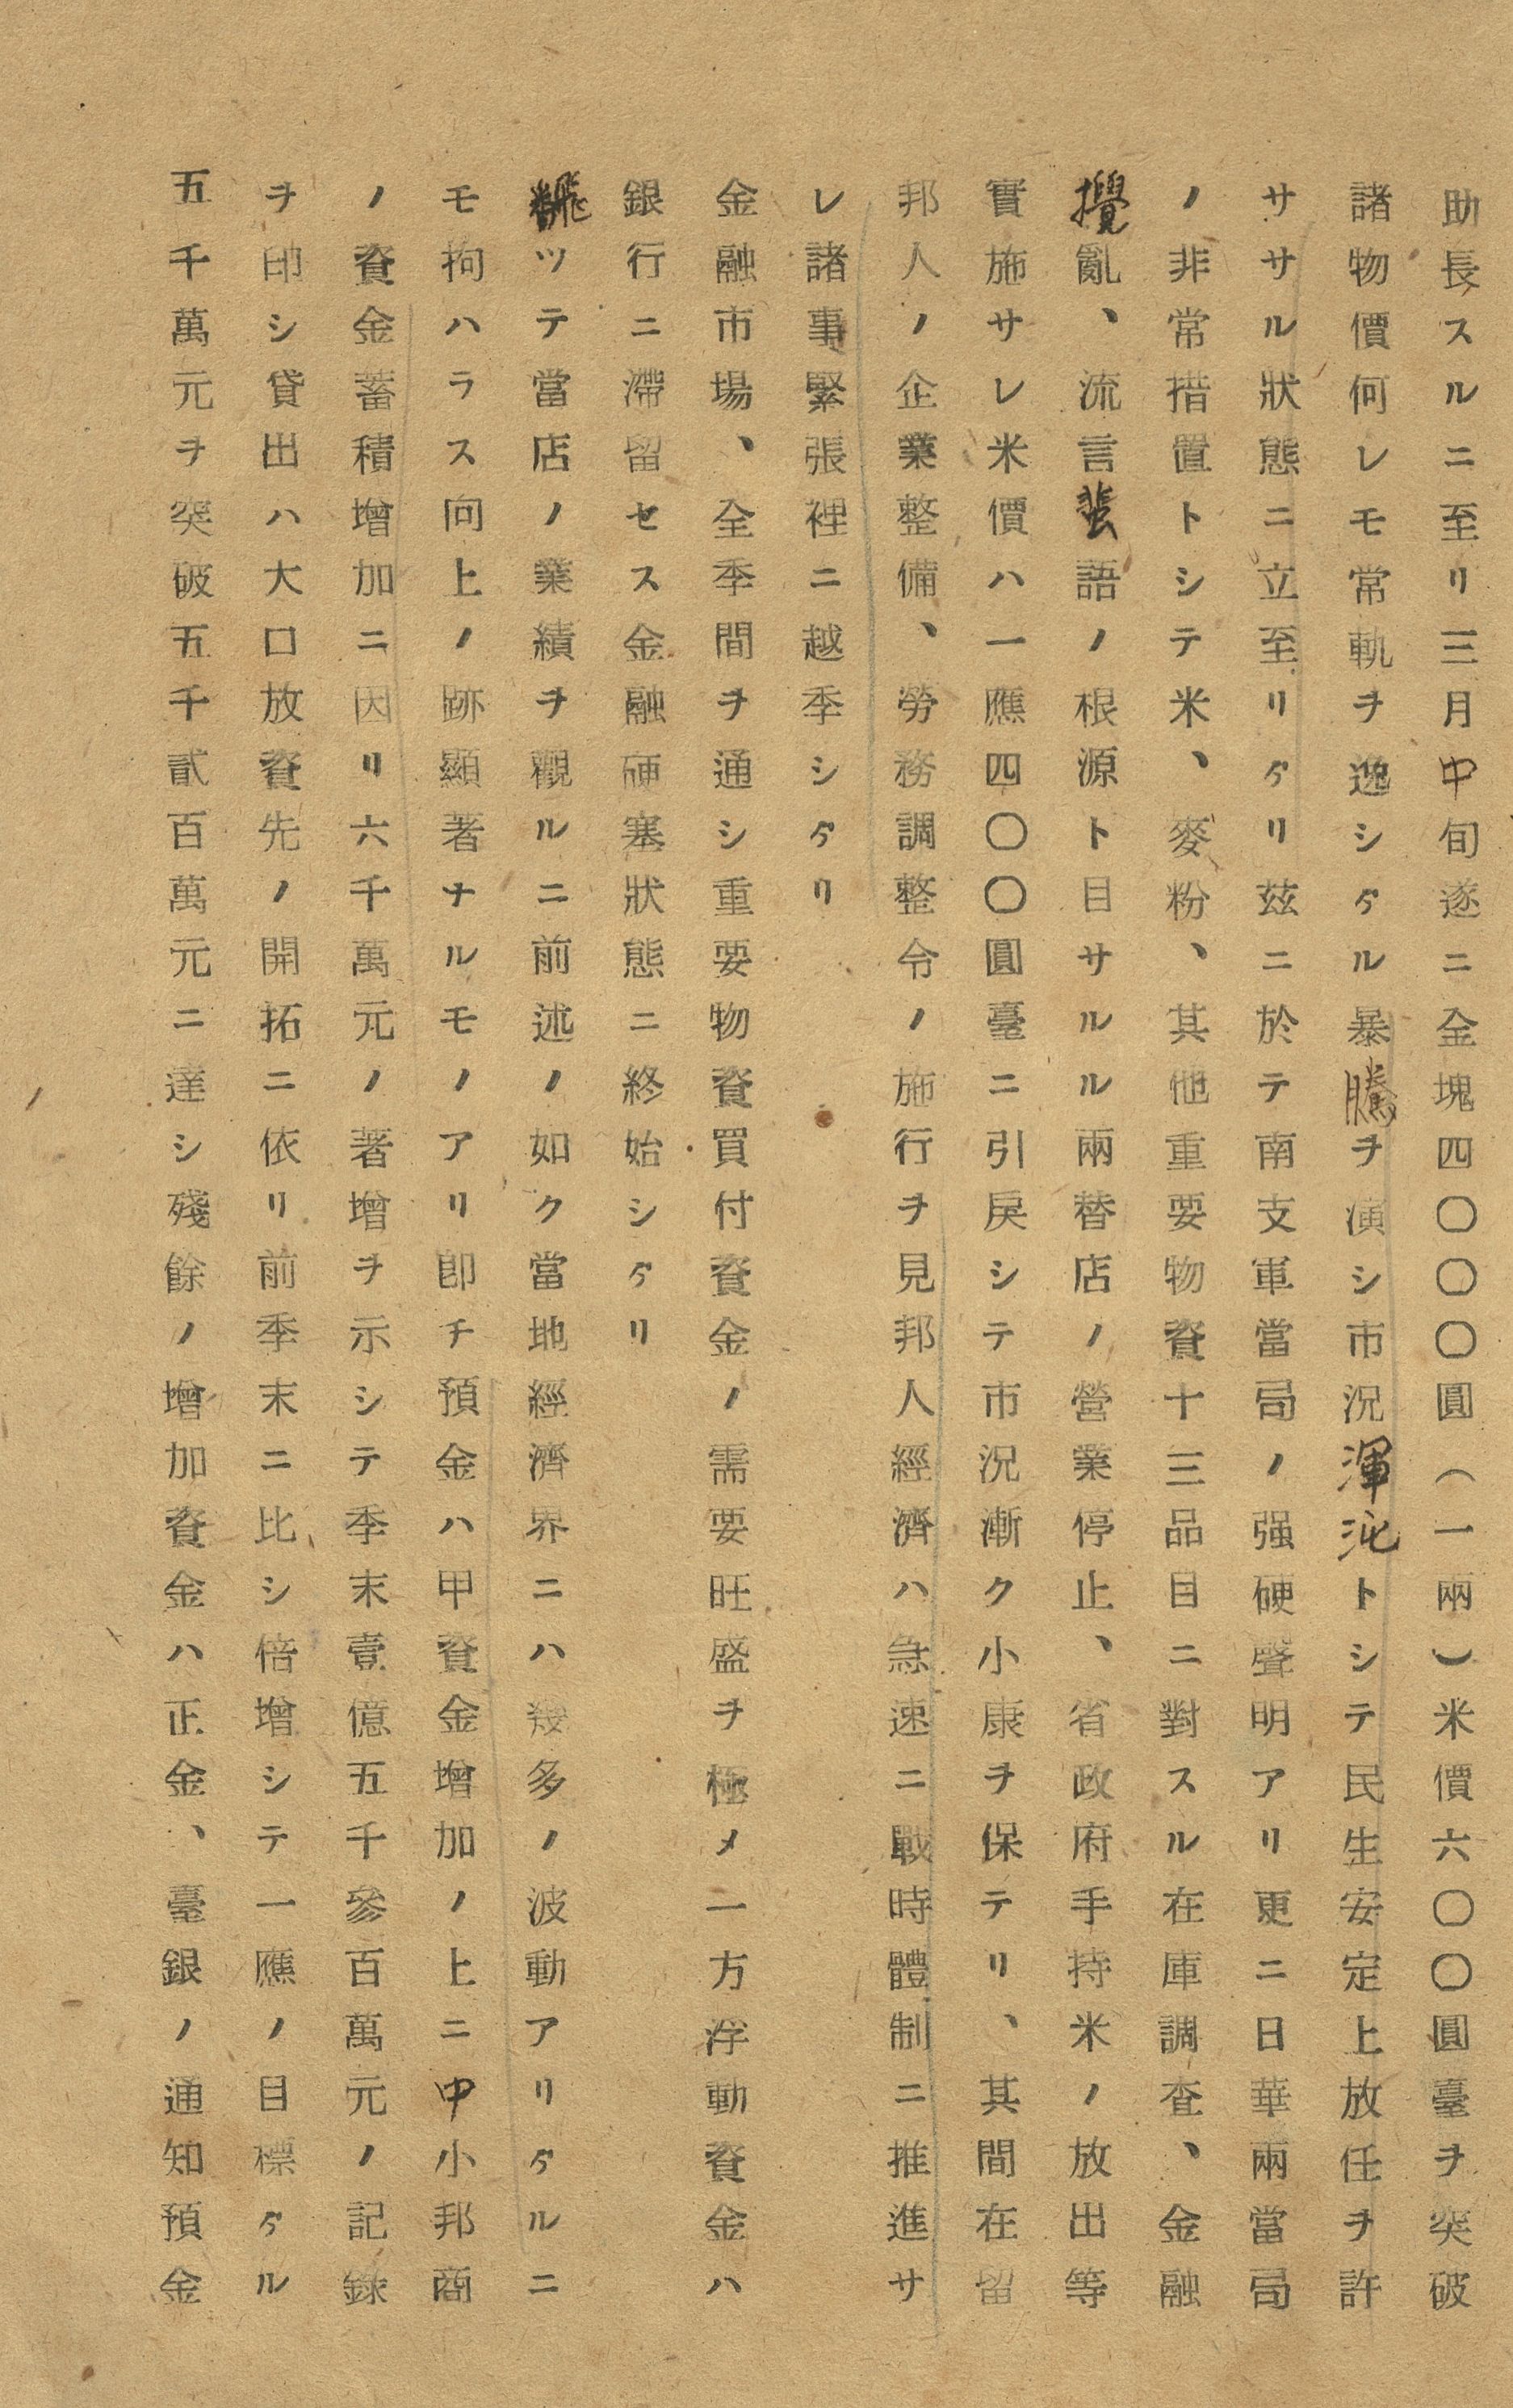 助長スルニ至リ三月中旬遂ニ金塊四〇〇〇圓（一兩）米價六〇〇圓臺ヲ突破
諸物價何レモ常軌ヲ逸シタル暴騰ヲ演シ市況渾沌トシテ民生安定上放任ヲ許
ササル狀態ニ立至リタリ玆ニ於テ南支軍當局ノ强硬聲明アリ更ニ日華兩當局
ノ非常措置トシテ米、麥粉、其他重要物資十三品目ニ對スル在庫調査、金融
攪亂、流言蜚語ノ根源ト目サルル兩替店ノ營業停止、省政府手持米ノ放出等
實施サレ米價ハ一應四〇〇圓臺ニ引戾シテ市況漸ク小康ヲ保テリ、其間在留
邦人ノ企業整備、勞務調整令ノ施行ヲ見邦人經濟ハ急速ニ戰時體制ニ推進サ
レ諸事緊張裡ニ越季シタリ
金融市場、全季間ヲ通シ重要物資買付資金ノ需要旺盛ヲ極メ一方浮動資金ハ
銀行ニ滯留セス金融硬塞狀態ニ終始シタリ
飜ツテ當店ノ業績ヲ觀ルニ前述ノ如ク當地經濟界ニハ幾多ノ波動アリタルニ
モ拘ハラス向上ノ跡顯著ナルモノアリ卽チ預金ハ甲資金增加ノ上ニ中小邦商
ノ資金蓄積增加ニ因リ六千萬元ノ著增ヲ示シテ季末壹億五千參百萬元ノ記錄
ヲ印シ貸出ハ大口放資先ノ開拓ニ依リ前季末ニ比シ倍增シテ一應ノ目標タル
五千萬元ヲ突破五千貳百萬元ニ達シ殘餘ノ增加資金ハ正金、臺銀ノ通知預金